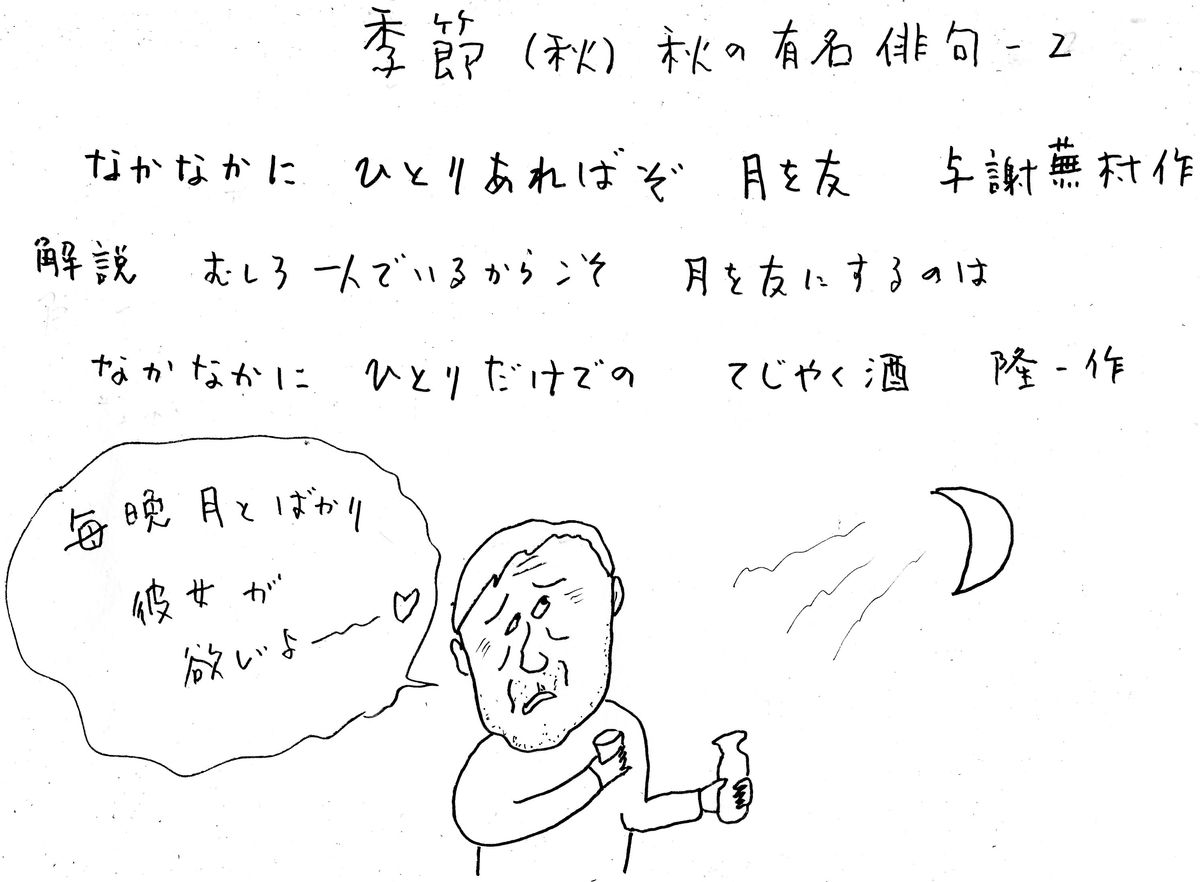 季節(秋) 秋の有名俳句-2
なかなかに ひとりあればぞ 月を友 与謝蕪村作
解説 むしろ一人でいるからこそ 月を友にするのは
なかなかに ひとりだけでの てじやく酒 隆一作
毎晩月とばかり
彼女が
欲しいよー〜♡